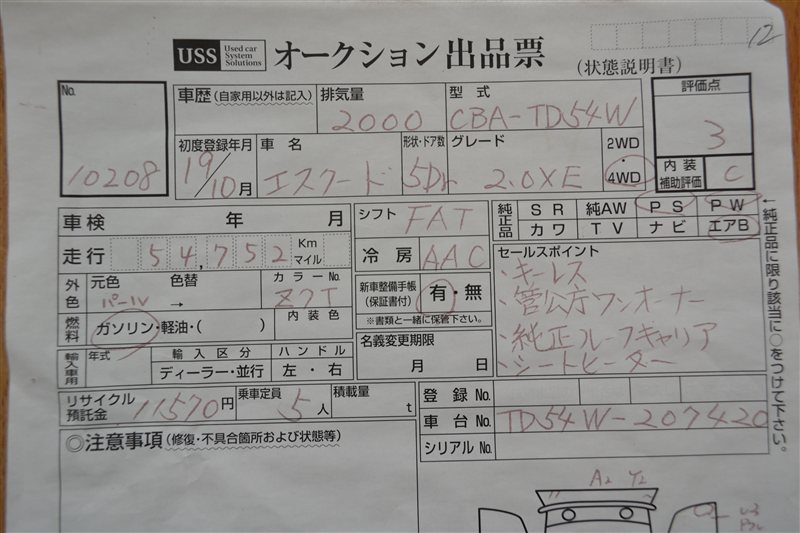 12
USS Used car System Solutions オークション出品票 (状態説明書)
No. 10208
車歴 (自家用以外は記入)
排気量 2000
型式 CBA-TD54W
評価点 3
初度登録年月 19/10月
車名 エスクード
形状・ドア数 5Dr
グレード 2.0XE
2WD・4WD
内装補助評価 C
車検 年 月
シフト FAT
純正品 SR 純AW PS PW
カワ TV ナビ エアB
←純正品に限り該当に○をつけて下さい。
走行 54,752 Km マイル
冷房 AAC
セールスポイント
・キーレス
・管公庁ワンオーナー
・純正ルーフキャリア
・シートヒーター
外色 元色 パール → 色替
カラーNo. Z7T
新車整備手帳(保証書付) 有・無
※書類と一緒に保管下さい。
燃料 ガソリン・軽油・( )
内装色
名義変更期限 月 日
輸入車用 年式 輸入区分 ハンドル
ディーラー・並行 左・右
リサイクル預託金 11570円
乗車定員 5人
積載量 t
登録No.
車台No. TD54W-207420
シリアルNo.
◎注意事項 (修復・不具合箇所および状態等)
A2 Y2